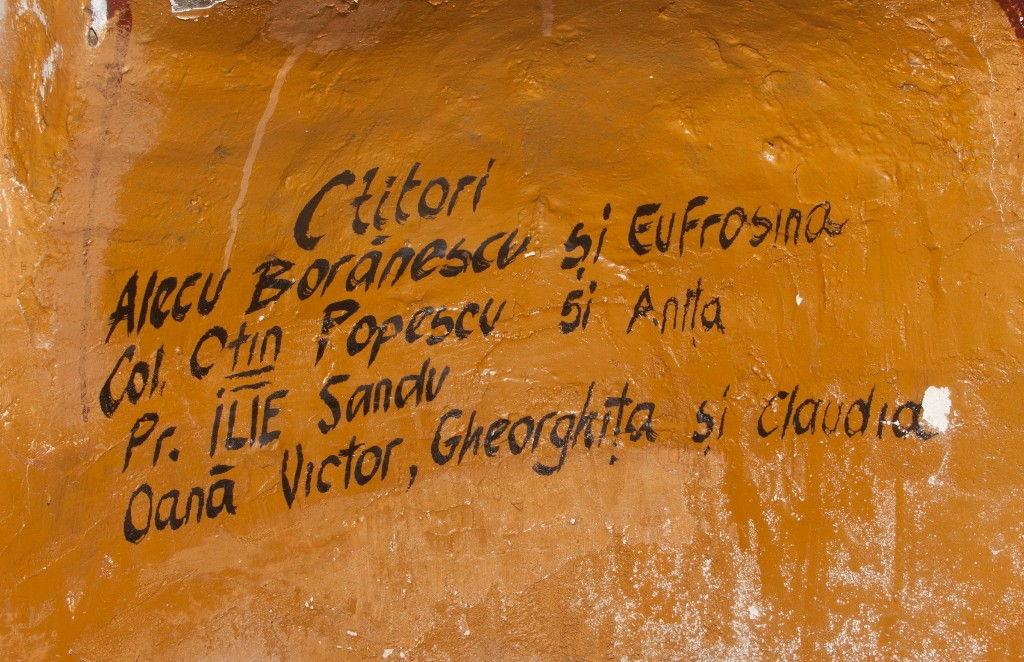 Ctitori
Alecu Borănescu și Eufrosina
Col. Ctin Popescu si Anita
Pr. ILIE Sandu
Oană Victor, Gheorghița și Claudia